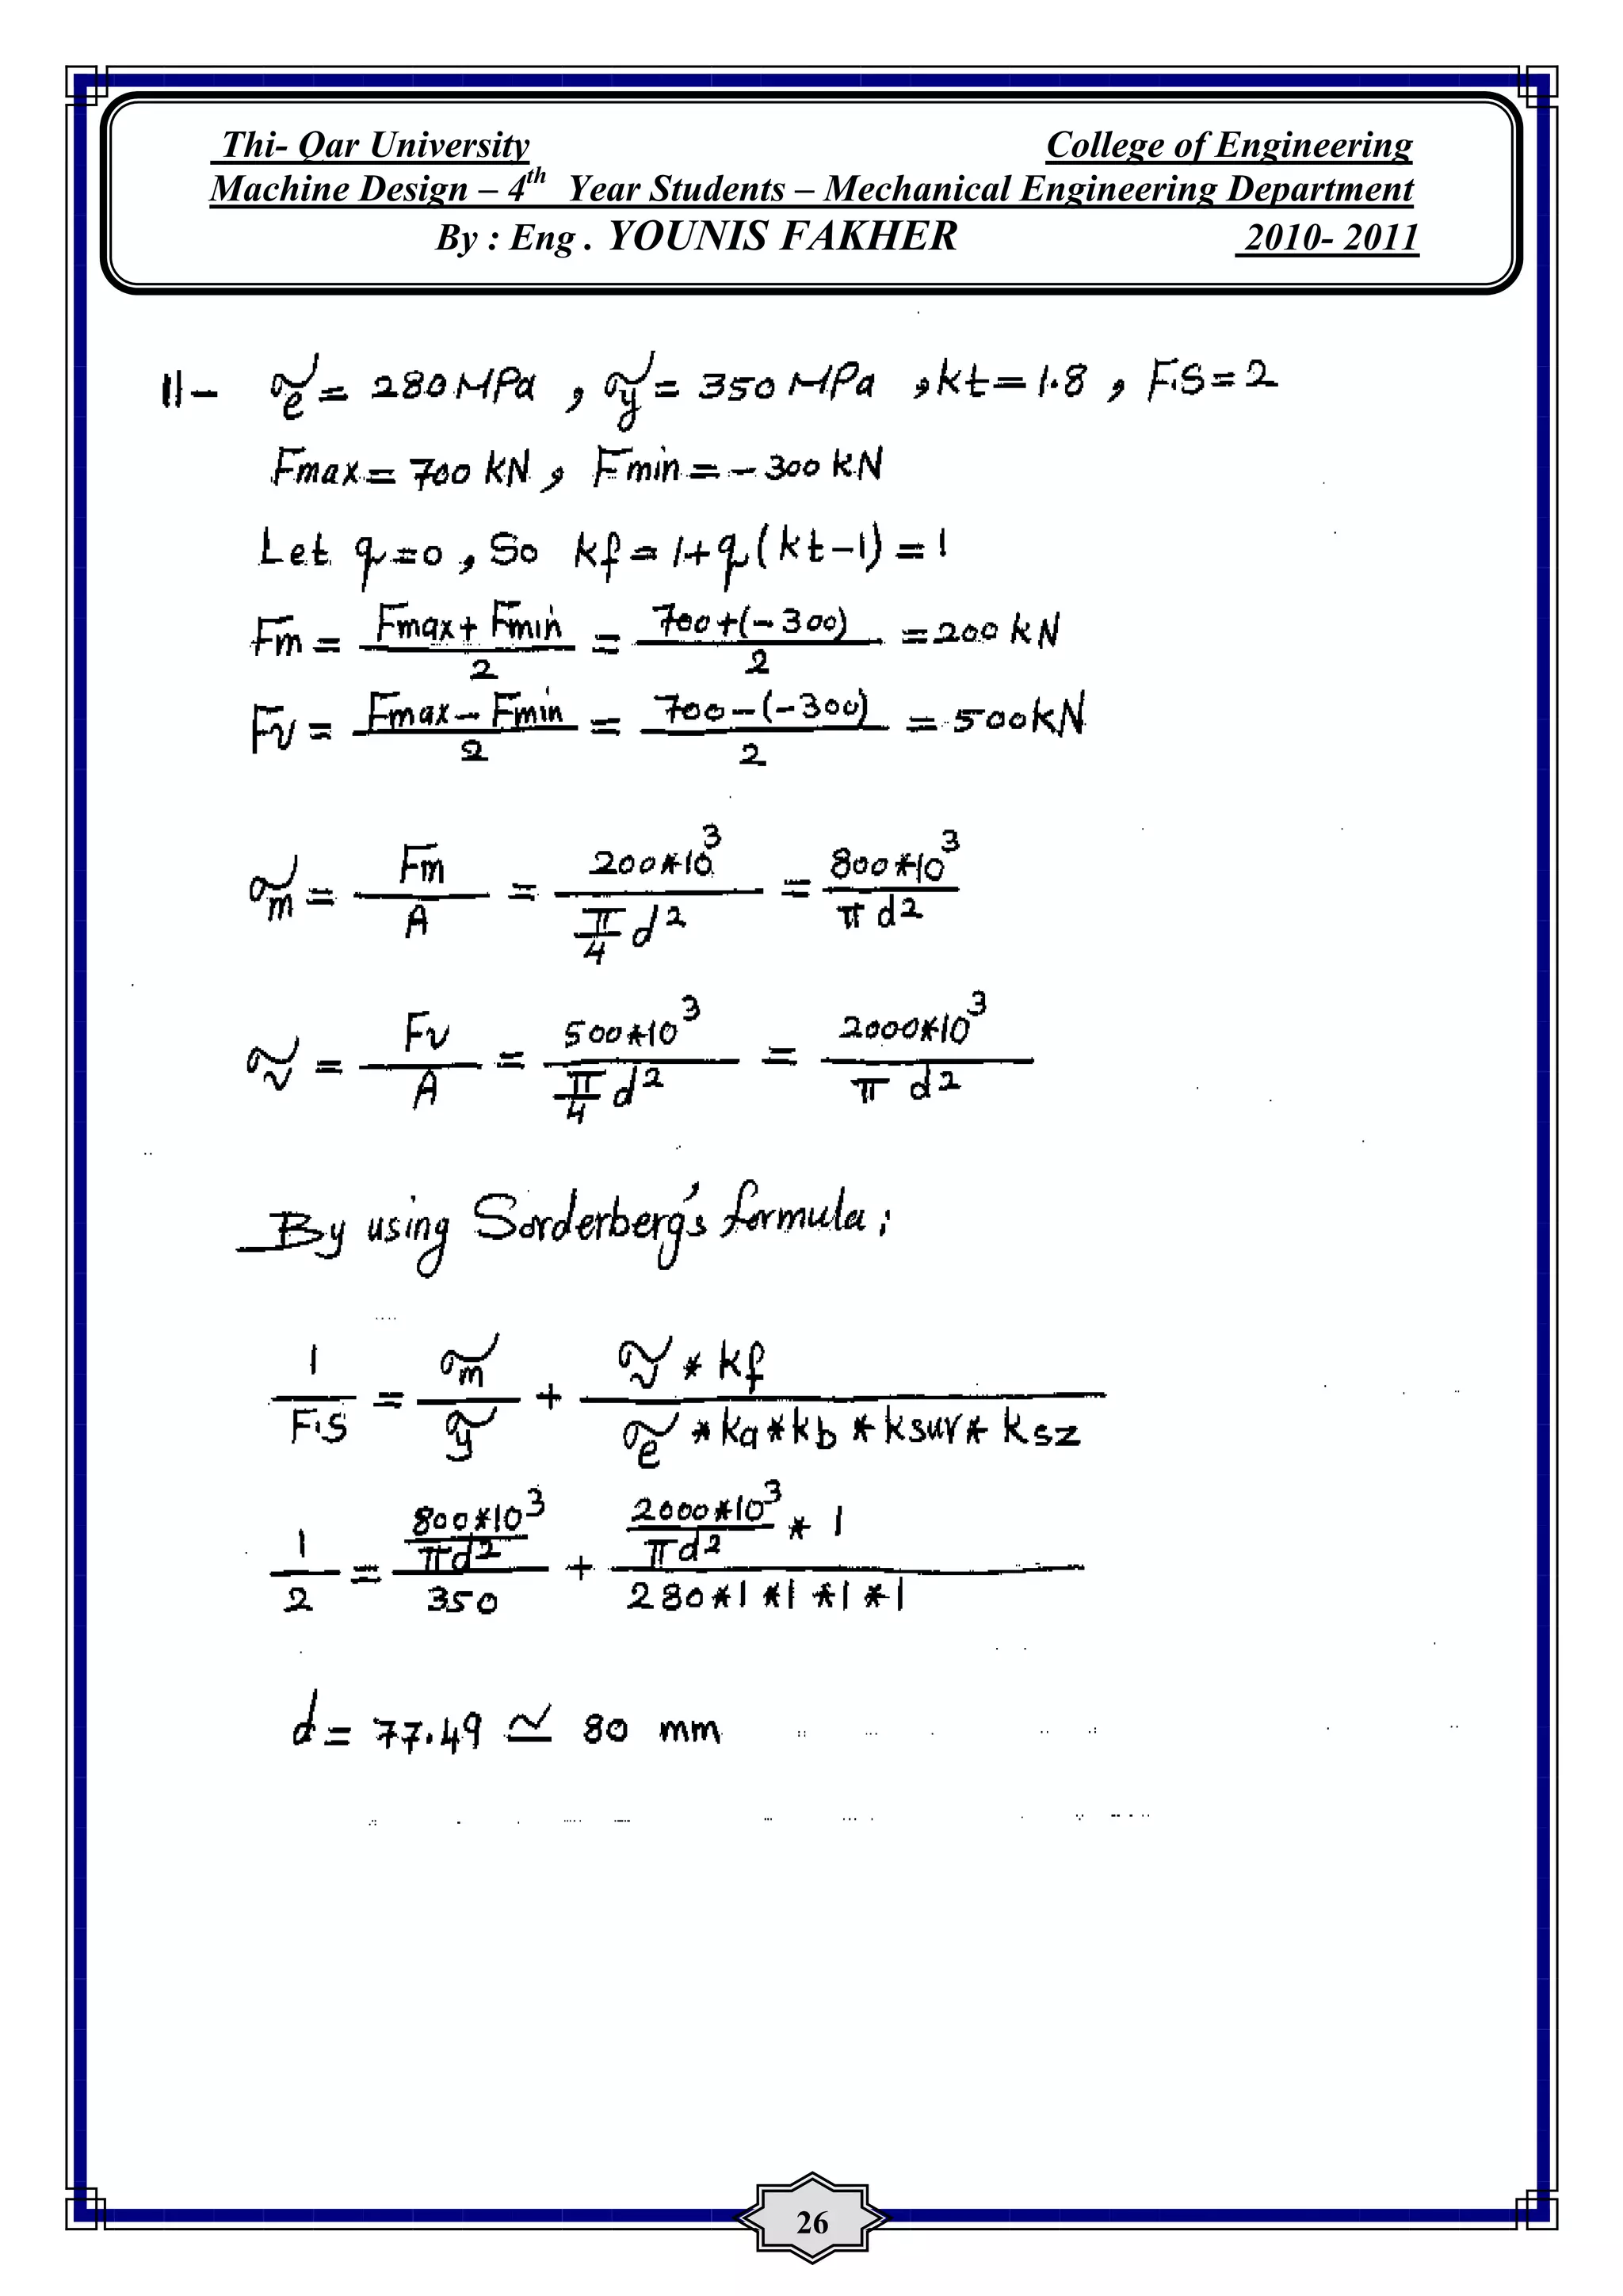 Thi- Qar University College of Engineering
Machine Design – 4th Year Students – Mechanical Engineering Department
By : Eng . YOUNIS FAKHER 2010- 2011
11- σe = 280 MPa , σy = 350 MPa , kt = 1.8 , F.S = 2
Fmax = 700 kN , Fmin = -300 kN
Let q = 0 , So kf = 1+q(kt-1) = 1
Fm = (Fmax + Fmin)/2 = (700+(-300))/2 = 200 kN
Fv = (Fmax - Fmin)/2 = (700-(-300))/2 = 500 kN
σm = Fm/A = 200*10^3/(π/4 d^2) = 800*10^3/(π d^2)
σv = Fv/A = 500*10^3/(π/4 d^2) = 2000*10^3/(π d^2)
By using Sorderberg's formula:
1/F.S = σm/σy + (σv * kf)/(σe * ka * kb * ksur * ksz)
1/2 = (800*10^3/πd^2)/350 + (2000*10^3/πd^2 * 1)/(280*1*1*1*1)
d = 77.49 ≃ 80 mm
26